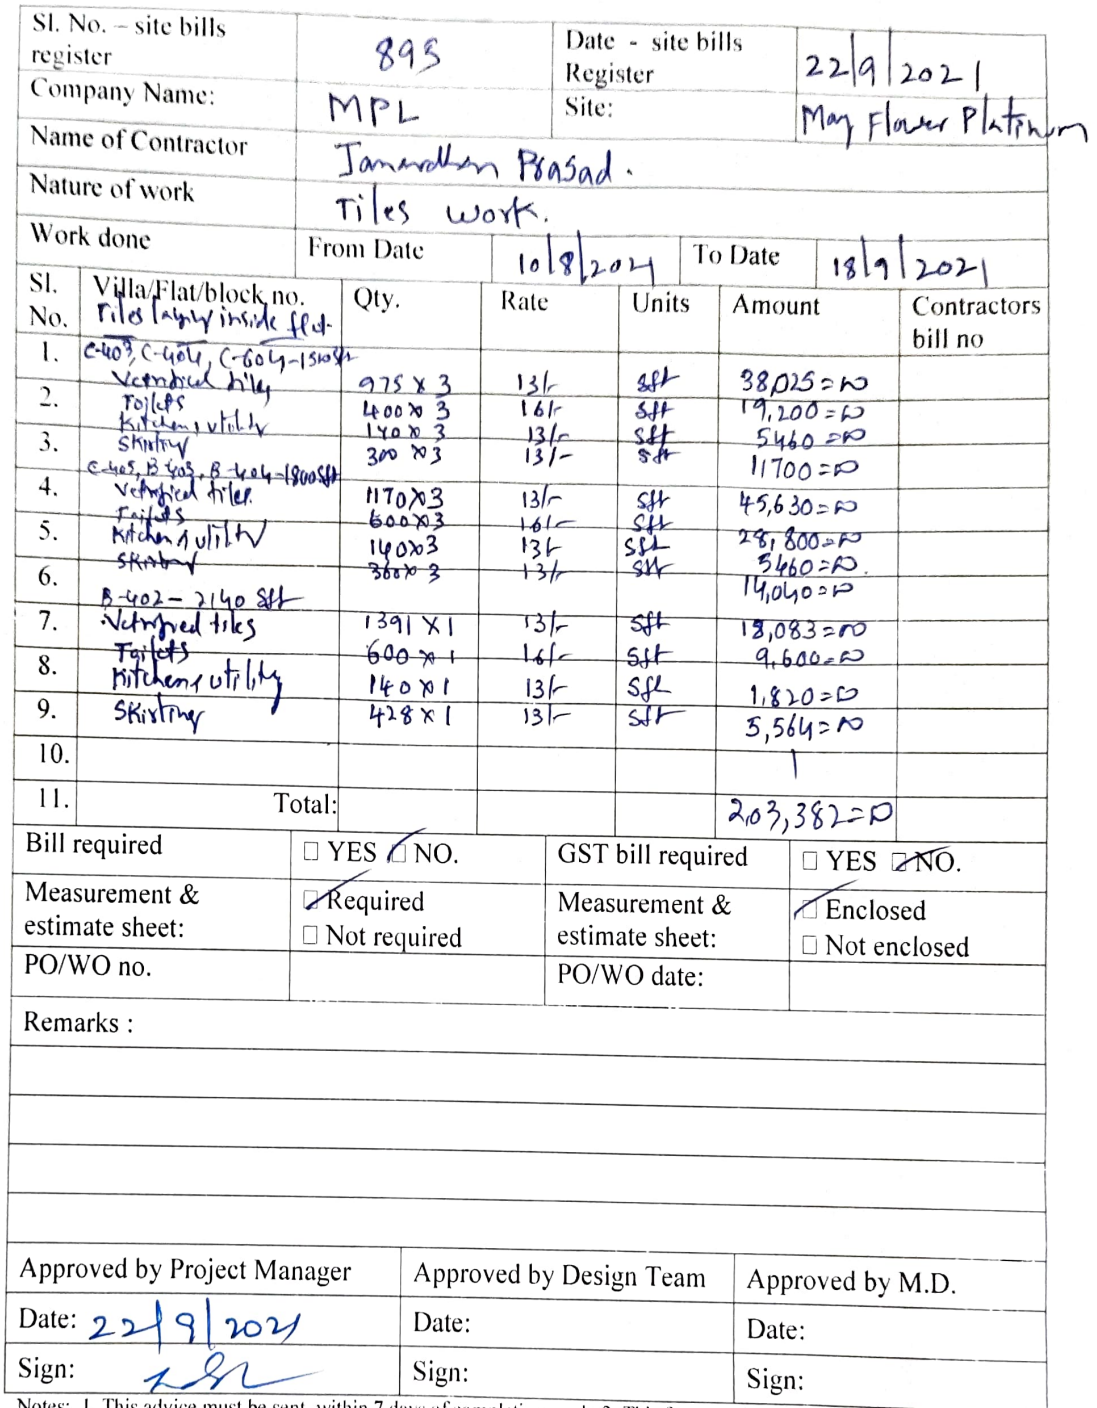 Sl. No. – site bills register 893 Date - site bills Register 22/9/2021
Company Name: MPL Site: May Flower Platinum
Name of Contractor Janardhan Prasad.
Nature of work Tiles work.
Work done From Date 10/8/2021 To Date 18/9/2021
Sl. No. Villa/Flat/block no. Qty. Rate Units Amount Contractors bill no
Tiles laying inside flat-
1. C-403, C-404, C-604-1500sft
Vetrified tiles 975 x 3 13/- sft 38,025=00
2. Toilets 400 x 3 16/- sft 19,200=00
Kitchen & utility 140 x 3 13/- sft 5460=00
3. Skirting 300 x3 13/- sft 11700=00
C-405, B-403, B-404-1800sft
4. Vetrified tiles 1170x3 13/- sft 45,630=00
Toilets 600x3 16/- sft 28,800=00
5. Kitchen & utility 140x3 13/- sft 5460=00.
Skirting 360x 3 13/- sft 14,040=00
6. B-402- 2140 sft
7. Vetrified tiles 1391 x1 13/- sft 18,083=00
Toilets 600 x 1 16/- sft 9,600=00
8. Kitchen & utility 140 x1 13/- sft 1,820=00
9. Skirting 428 x1 13/- sft 5,564=00
10.
11. Total: 203,382=00
Bill required □ YES □ NO. GST bill required □ YES □ NO.
Measurement & estimate sheet: □ Required □ Not required Measurement & estimate sheet: □ Enclosed □ Not enclosed
PO/WO no. PO/WO date:
Remarks :
Approved by Project Manager Approved by Design Team Approved by M.D.
Date: 22/9/2021 Date: Date:
Sign: Sign: Sign:
Notes: 1. This advice must be sent within 7 days of